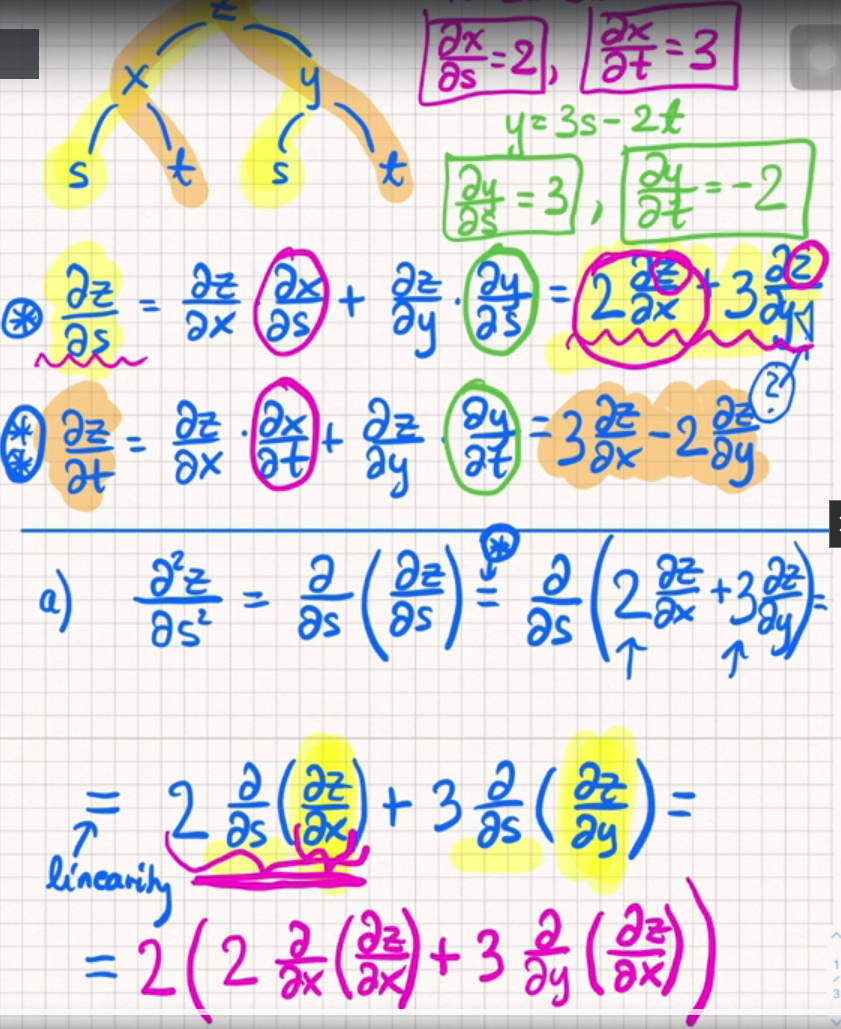 z
x y
s t s t
∂x/∂s = 2, ∂x/∂t = 3
y = 3s - 2t
∂y/∂s = 3, ∂y/∂t = -2
⊛ ∂z/∂s = ∂z/∂x · ∂x/∂s + ∂z/∂y · ∂y/∂s = 2 ∂z/∂x + 3 ∂z/∂y
?
** ∂z/∂t = ∂z/∂x · ∂x/∂t + ∂z/∂y · ∂y/∂t = 3 ∂z/∂x - 2 ∂z/∂y
⊛
a) ∂²z/∂s² = ∂/∂s (∂z/∂s) = ∂/∂s (2 ∂z/∂x + 3 ∂z/∂y) =
= 2 ∂/∂s (∂z/∂x) + 3 ∂/∂s (∂z/∂y) =
linearity
= 2 (2 ∂/∂x (∂z/∂x) + 3 ∂/∂y (∂z/∂x))
1
/
3